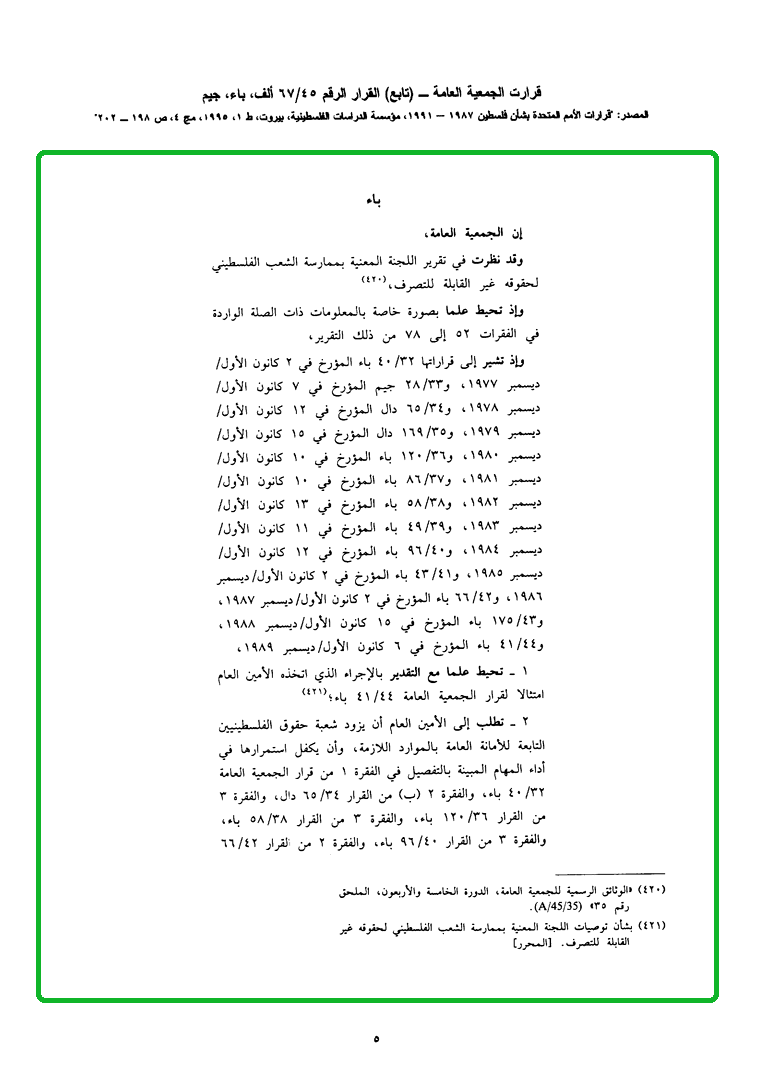 قرارت الجمعية العامة ــ (تابع) القرار الرقم ٦٧/٤٥ ألف، باء، جيم
المصدر: "قرارات الأمم المتحدة بشأن فلسطين ١٩٨٧ – ١٩٩١، مؤسسة الدراسات الفلسطينية، بيروت، ط ١، ١٩٩٥، مج ٤، ص ١٩٨ ــ ٢٠٢"
باء
إن الجمعية العامة،
وقد نظرت في تقرير اللجنة المعنية بممارسة الشعب الفلسطيني
لحقوقه غير القابلة للتصرف،(٤٢٠)
وإذ تحيط علما بصورة خاصة بالمعلومات ذات الصلة الواردة
في الفقرات ٥٢ إلى ٧٨ من ذلك التقرير،
وإذ تشير إلى قراراتها ٤٠/٣٢ باء المؤرخ في ٢ كانون الأول/
ديسمبر ١٩٧٧، و٢٨/٣٣ جيم المؤرخ في ٧ كانون الأول/
ديسمبر ١٩٧٨، و٦٥/٣٤ دال المؤرخ في ١٢ كانون الأول/
ديسمبر ١٩٧٩، و١٦٩/٣٥ دال المؤرخ في ١٥ كانون الأول/
ديسمبر ١٩٨٠، و١٢٠/٣٦ باء المؤرخ في ١٠ كانون الأول/
ديسمبر ١٩٨١، و٨٦/٣٧ باء المؤرخ في ١٠ كانون الأول/
ديسمبر ١٩٨٢، و٥٨/٣٨ باء المؤرخ في ١٣ كانون الأول/
ديسمبر ١٩٨٣، و٤٩/٣٩ باء المؤرخ في ١١ كانون الأول/
ديسمبر ١٩٨٤، و٩٦/٤٠ باء المؤرخ في ١٢ كانون الأول/
ديسمبر ١٩٨٥، و٤٣/٤١ باء المؤرخ في ٢ كانون الأول/ديسمبر
١٩٨٦، و٦٦/٤٢ باء المؤرخ في ٢ كانون الأول/ديسمبر ١٩٨٧،
و١٧٥/٤٣ باء المؤرخ في ١٥ كانون الأول/ديسمبر ١٩٨٨،
و٤١/٤٤ باء المؤرخ في ٦ كانون الأول/ديسمبر ١٩٨٩،
١ ـ تحيط علما مع التقدير بالإجراء الذي اتخذه الأمين العام
امتثالا لقرار الجمعية العامة ٤١/٤٤ باء؛(٤٢١)
٢ ـ تطلب إلى الأمين العام أن يزود شعبة حقوق الفلسطينيين
التابعة للأمانة العامة بالموارد اللازمة، وأن يكفل استمرارها في
أداء المهام المبينة بالتفصيل في الفقرة ١ من قرار الجمعية العامة
٤٠/٣٢ باء، والفقرة ٢ (ب) من القرار ٦٥/٣٤ دال، والفقرة ٣
من القرار ١٢٠/٣٦ باء، والفقرة ٣ من القرار ٥٨/٣٨ باء،
والفقرة ٣ من القرار ٩٦/٤٠ باء، والفقرة ٢ من القرار ٦٦/٤٢
(٤٢٠) «الوثائق الرسمية للجمعية العامة، الدورة الخامسة والأربعون، الملحق
رقم ٣٥» (A/45/35).
(٤٢١) بشأن توصيات اللجنة المعنية بممارسة الشعب الفلسطيني لحقوقه غير
القابلة للتصرف. [المحرر]
٥